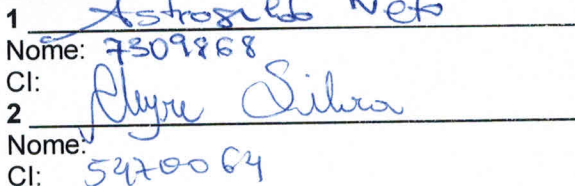 1 Astrogildo Neto
Nome: 7309868
CI:
2 Silva
Nome:
CI: 5470064